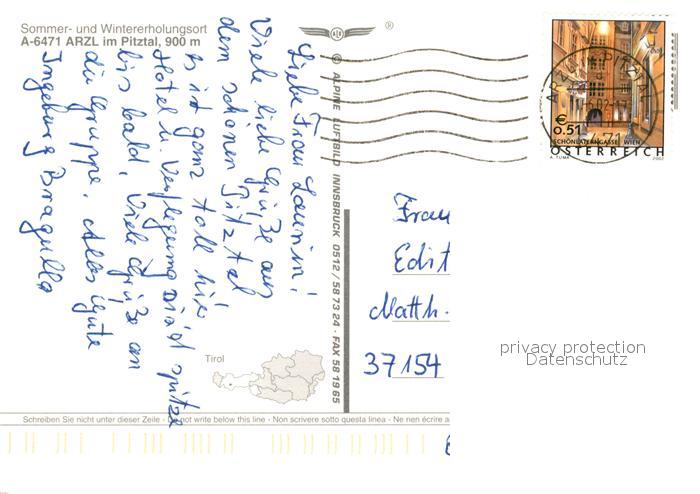 Sommer- und Wintererholungsort
A-6471 ARZL im Pitztal, 900 m
®
© ALPINE LUFTBILD INNSBRUCK 0512 / 58 73 24 · FAX 58 19 65
Liebe Frau
Viele liebe Grüße aus
dem schönen Pitztal
es ist ganz toll hier
Hotel u. Verpflegung sind spitze
bis bald, Viele Grüße an
die Gruppe. Alles Gute
Ingeburg Bragulla
€
0.51
SCHÖNLATERNGASSE WIEN
A. TUMA 2002
ÖSTERREICH
Frau
Edit
Matth.
37154
privacy protection
Datenschutz
Tirol
Schreiben Sie nicht unter dieser Zeile - Do not write below this line - Non scrivere sotto questa linea - Ne rien écrire a